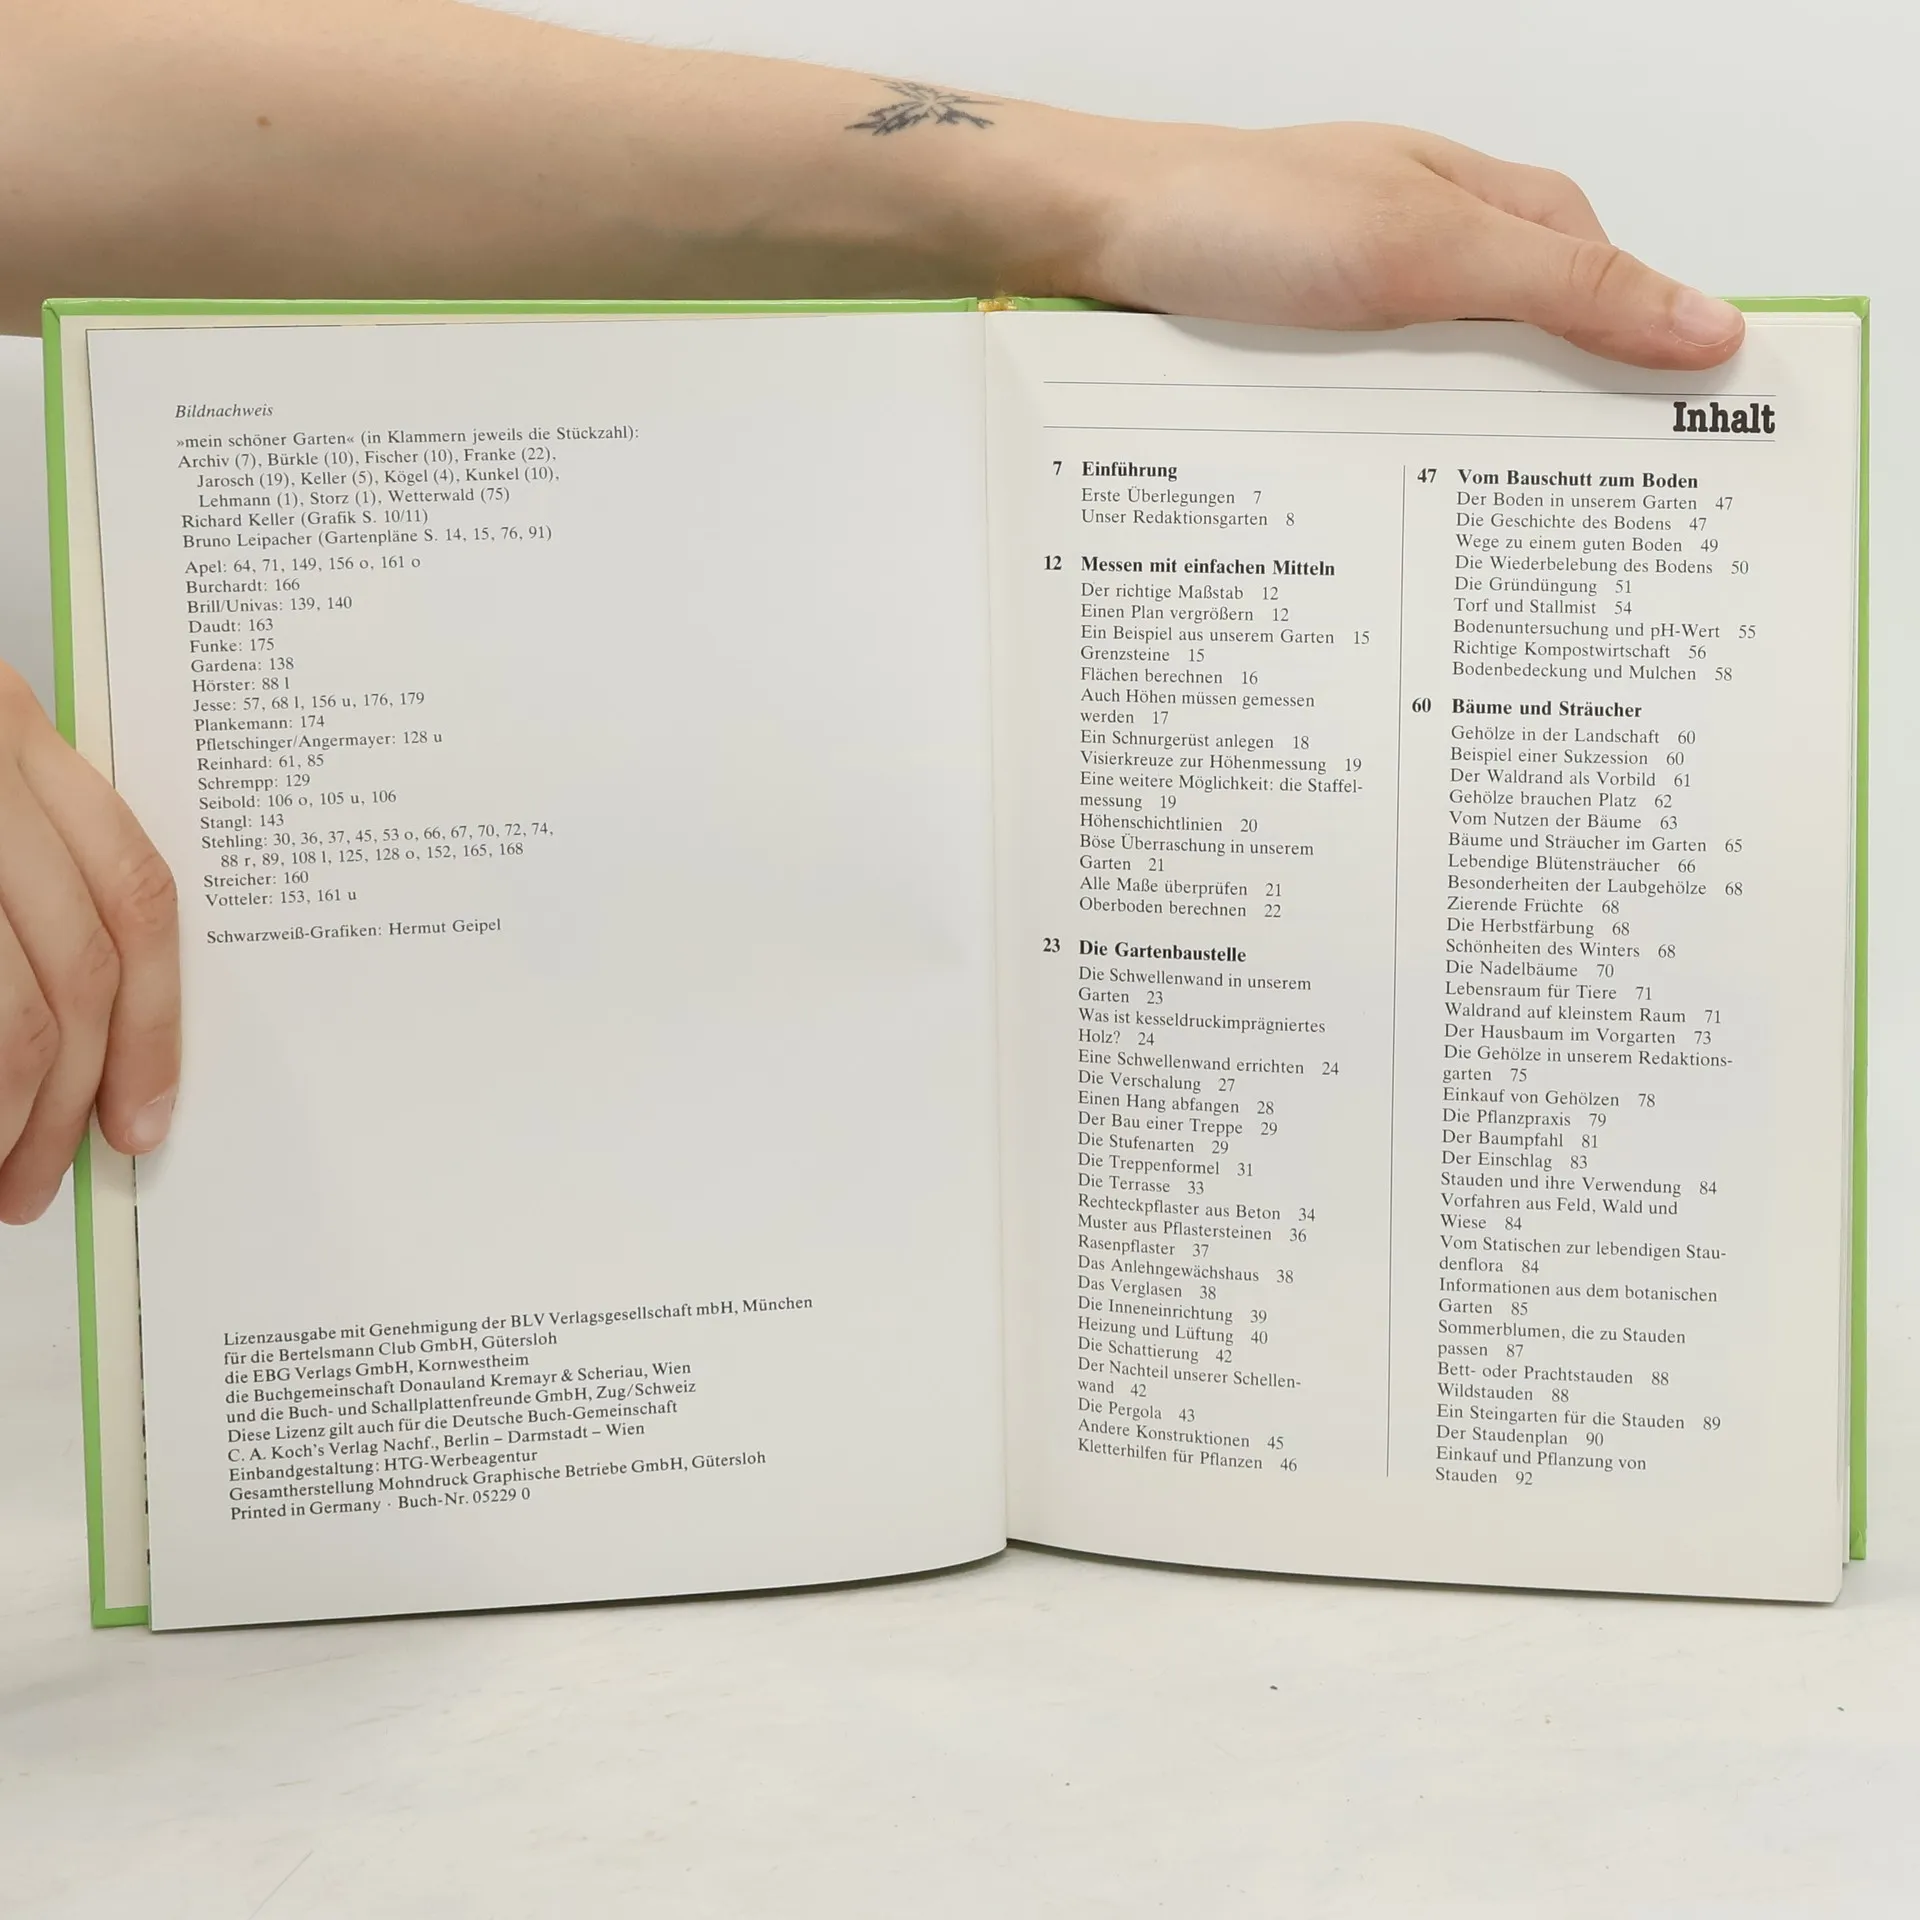 Bildnachweis
»mein schöner Garten« (in Klammern jeweils die Stückzahl):
Archiv (7), Bürkle (10), Fischer (10), Franke (22),
Jarosch (19), Keller (5), Kögel (4), Kunkel (10),
Lehmann (1), Storz (1), Wetterwald (75)
Richard Keller (Grafik S. 10/11)
Bruno Leipacher (Gartenpläne S. 14, 15, 76, 91)
Apel: 64, 71, 149, 156 o, 161 o
Burchardt: 166
Brill/Univas: 139, 140
Daudt: 163
Funke: 175
Gardena: 138
Hörster: 88 l
Jesse: 57, 68 l, 156 u, 176, 179
Plankemann: 174
Pfletschinger/Angermayer: 128 u
Reinhard: 61, 85
Schrempp: 129
Seibold: 106 o, 105 u, 106
Stangl: 143
Stehling: 30, 36, 37, 45, 53 o, 66, 67, 70, 72, 74,
88 r, 89, 108 l, 125, 128 o, 152, 165, 168
Streicher: 160
Votteler: 153, 161 u
Schwarzweiß-Grafiken: Hermut Geipel
Lizenzausgabe mit Genehmigung der BLV Verlagsgesellschaft mbH, München
für die Bertelsmann Club GmbH, Gütersloh
die EBG Verlags GmbH, Kornwestheim
die Buchgemeinschaft Donauland Kremayr & Scheriau, Wien
und die Buch- und Schallplattenfreunde GmbH, Zug/Schweiz
Diese Lizenz gilt auch für die Deutsche Buch-Gemeinschaft
C. A. Koch's Verlag Nachf., Berlin – Darmstadt – Wien
Einbandgestaltung: HTG-Werbeagentur
Gesamtherstellung Mohndruck Graphische Betriebe GmbH, Gütersloh
Printed in Germany · Buch-Nr. 05229 0
Inhalt
7 Einführung
Erste Überlegungen 7
Unser Redaktionsgarten 8
12 Messen mit einfachen Mitteln
Der richtige Maßstab 12
Einen Plan vergrößern 12
Ein Beispiel aus unserem Garten 15
Grenzsteine 15
Flächen berechnen 16
Auch Höhen müssen gemessen
werden 17
Ein Schnurgerüst anlegen 18
Visierkreuze zur Höhenmessung 19
Eine weitere Möglichkeit: die Staffel-
messung 19
Höhenschichtlinien 20
Böse Überraschung in unserem
Garten 21
Alle Maße überprüfen 21
Oberboden berechnen 22
23 Die Gartenbaustelle
Die Schwellenwand in unserem
Garten 23
Was ist kesseldruckimprägniertes
Holz? 24
Eine Schwellenwand errichten 24
Die Verschalung 27
Einen Hang abfangen 28
Der Bau einer Treppe 29
Die Stufenarten 29
Die Treppenformel 31
Die Terrasse 33
Rechteckpflaster aus Beton 34
Muster aus Pflastersteinen 36
Rasenpflaster 37
Das Anlehngewächshaus 38
Das Verglasen 38
Die Inneneinrichtung 39
Heizung und Lüftung 40
Die Schattierung 42
Der Nachteil unserer Schellen-
wand 42
Die Pergola 43
Andere Konstruktionen 45
Kletterhilfen für Pflanzen 46
47 Vom Bauschutt zum Boden
Der Boden in unserem Garten 47
Die Geschichte des Bodens 47
Wege zu einem guten Boden 49
Die Wiederbelebung des Bodens 50
Die Gründüngung 51
Torf und Stallmist 54
Bodenuntersuchung und pH-Wert 55
Richtige Kompostwirtschaft 56
Bodenbedeckung und Mulchen 58
60 Bäume und Sträucher
Gehölze in der Landschaft 60
Beispiel einer Sukzession 60
Der Waldrand als Vorbild 61
Gehölze brauchen Platz 62
Vom Nutzen der Bäume 63
Bäume und Sträucher im Garten 65
Lebendige Blütensträucher 66
Besonderheiten der Laubgehölze 68
Zierende Früchte 68
Die Herbstfärbung 68
Schönheiten des Winters 68
Die Nadelbäume 70
Lebensraum für Tiere 71
Waldrand auf kleinstem Raum 71
Der Hausbaum im Vorgarten 73
Die Gehölze in unserem Redaktions-
garten 75
Einkauf von Gehölzen 78
Die Pflanzpraxis 79
Der Baumpfahl 81
Der Einschlag 83
Stauden und ihre Verwendung 84
Vorfahren aus Feld, Wald und
Wiese 84
Vom Statischen zur lebendigen Stau-
denflora 84
Informationen aus dem botanischen
Garten 85
Sommerblumen, die zu Stauden
passen 87
Bett- oder Prachtstauden 88
Wildstauden 88
Ein Steingarten für die Stauden 89
Der Staudenplan 90
Einkauf und Pflanzung von
Stauden 92